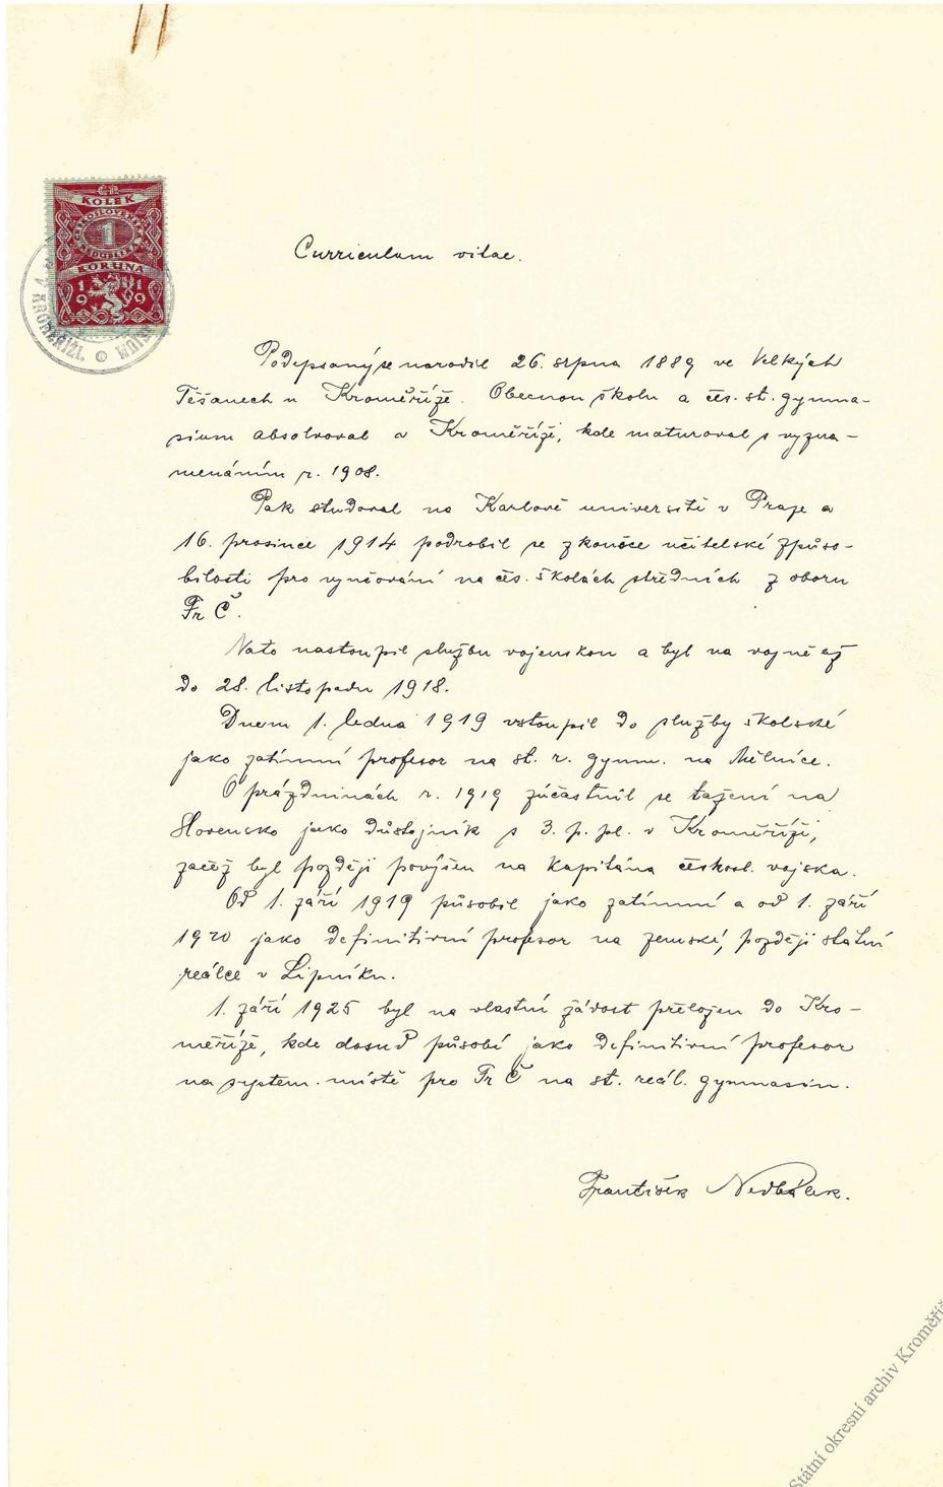 Č.R.
KOLEK
ČESKOSLOVENSKÁ
1
REPUBLIKA
KORUNA
1 1
9 9
V KROMĚŘÍŽI.
Curriculum vitae.
Podepsaný se narodil 26. srpna 1889 ve Velkých
Těšanech u Kroměříže. Obecnou školu a čes. st. gymna-
sium absolvoval v Kroměříži, kde maturoval s vyzna-
menáním r. 1908.
Pak studoval na Karlově universitě v Praze a
16. prosince 1914 podrobil se zkoušce učitelské způso-
bilosti pro vyučování na čes. školách středních z oboru
Fr Č.
Nato nastoupil službu vojenskou a byl na vojně až
do 28. listopadu 1918.
Dnem 1. ledna 1919 vstoupil do služby školské
jako zatímní profesor na st. r. gymn. na Mělníce.
O prázdninách r. 1919 zúčastnil se tažení na
Slovensko jako důstojník s 3. p. pl. v Kroměříži,
začež byl později povýšen na kapitána českosl. vojska.
Od 1. září 1919 působil jako zatímní a od 1. září
1920 jako definitivní profesor na zemské, později státní
reálce v Lipníku.
1. září 1925 byl na vlastní žádost přeložen do Kro-
měříže, kde dosud působí jako definitivní profesor
na system. místě pro Fr Č na st. reál. gymnasiu.
František Nedbálek.
Státní okresní archiv Kroměříž